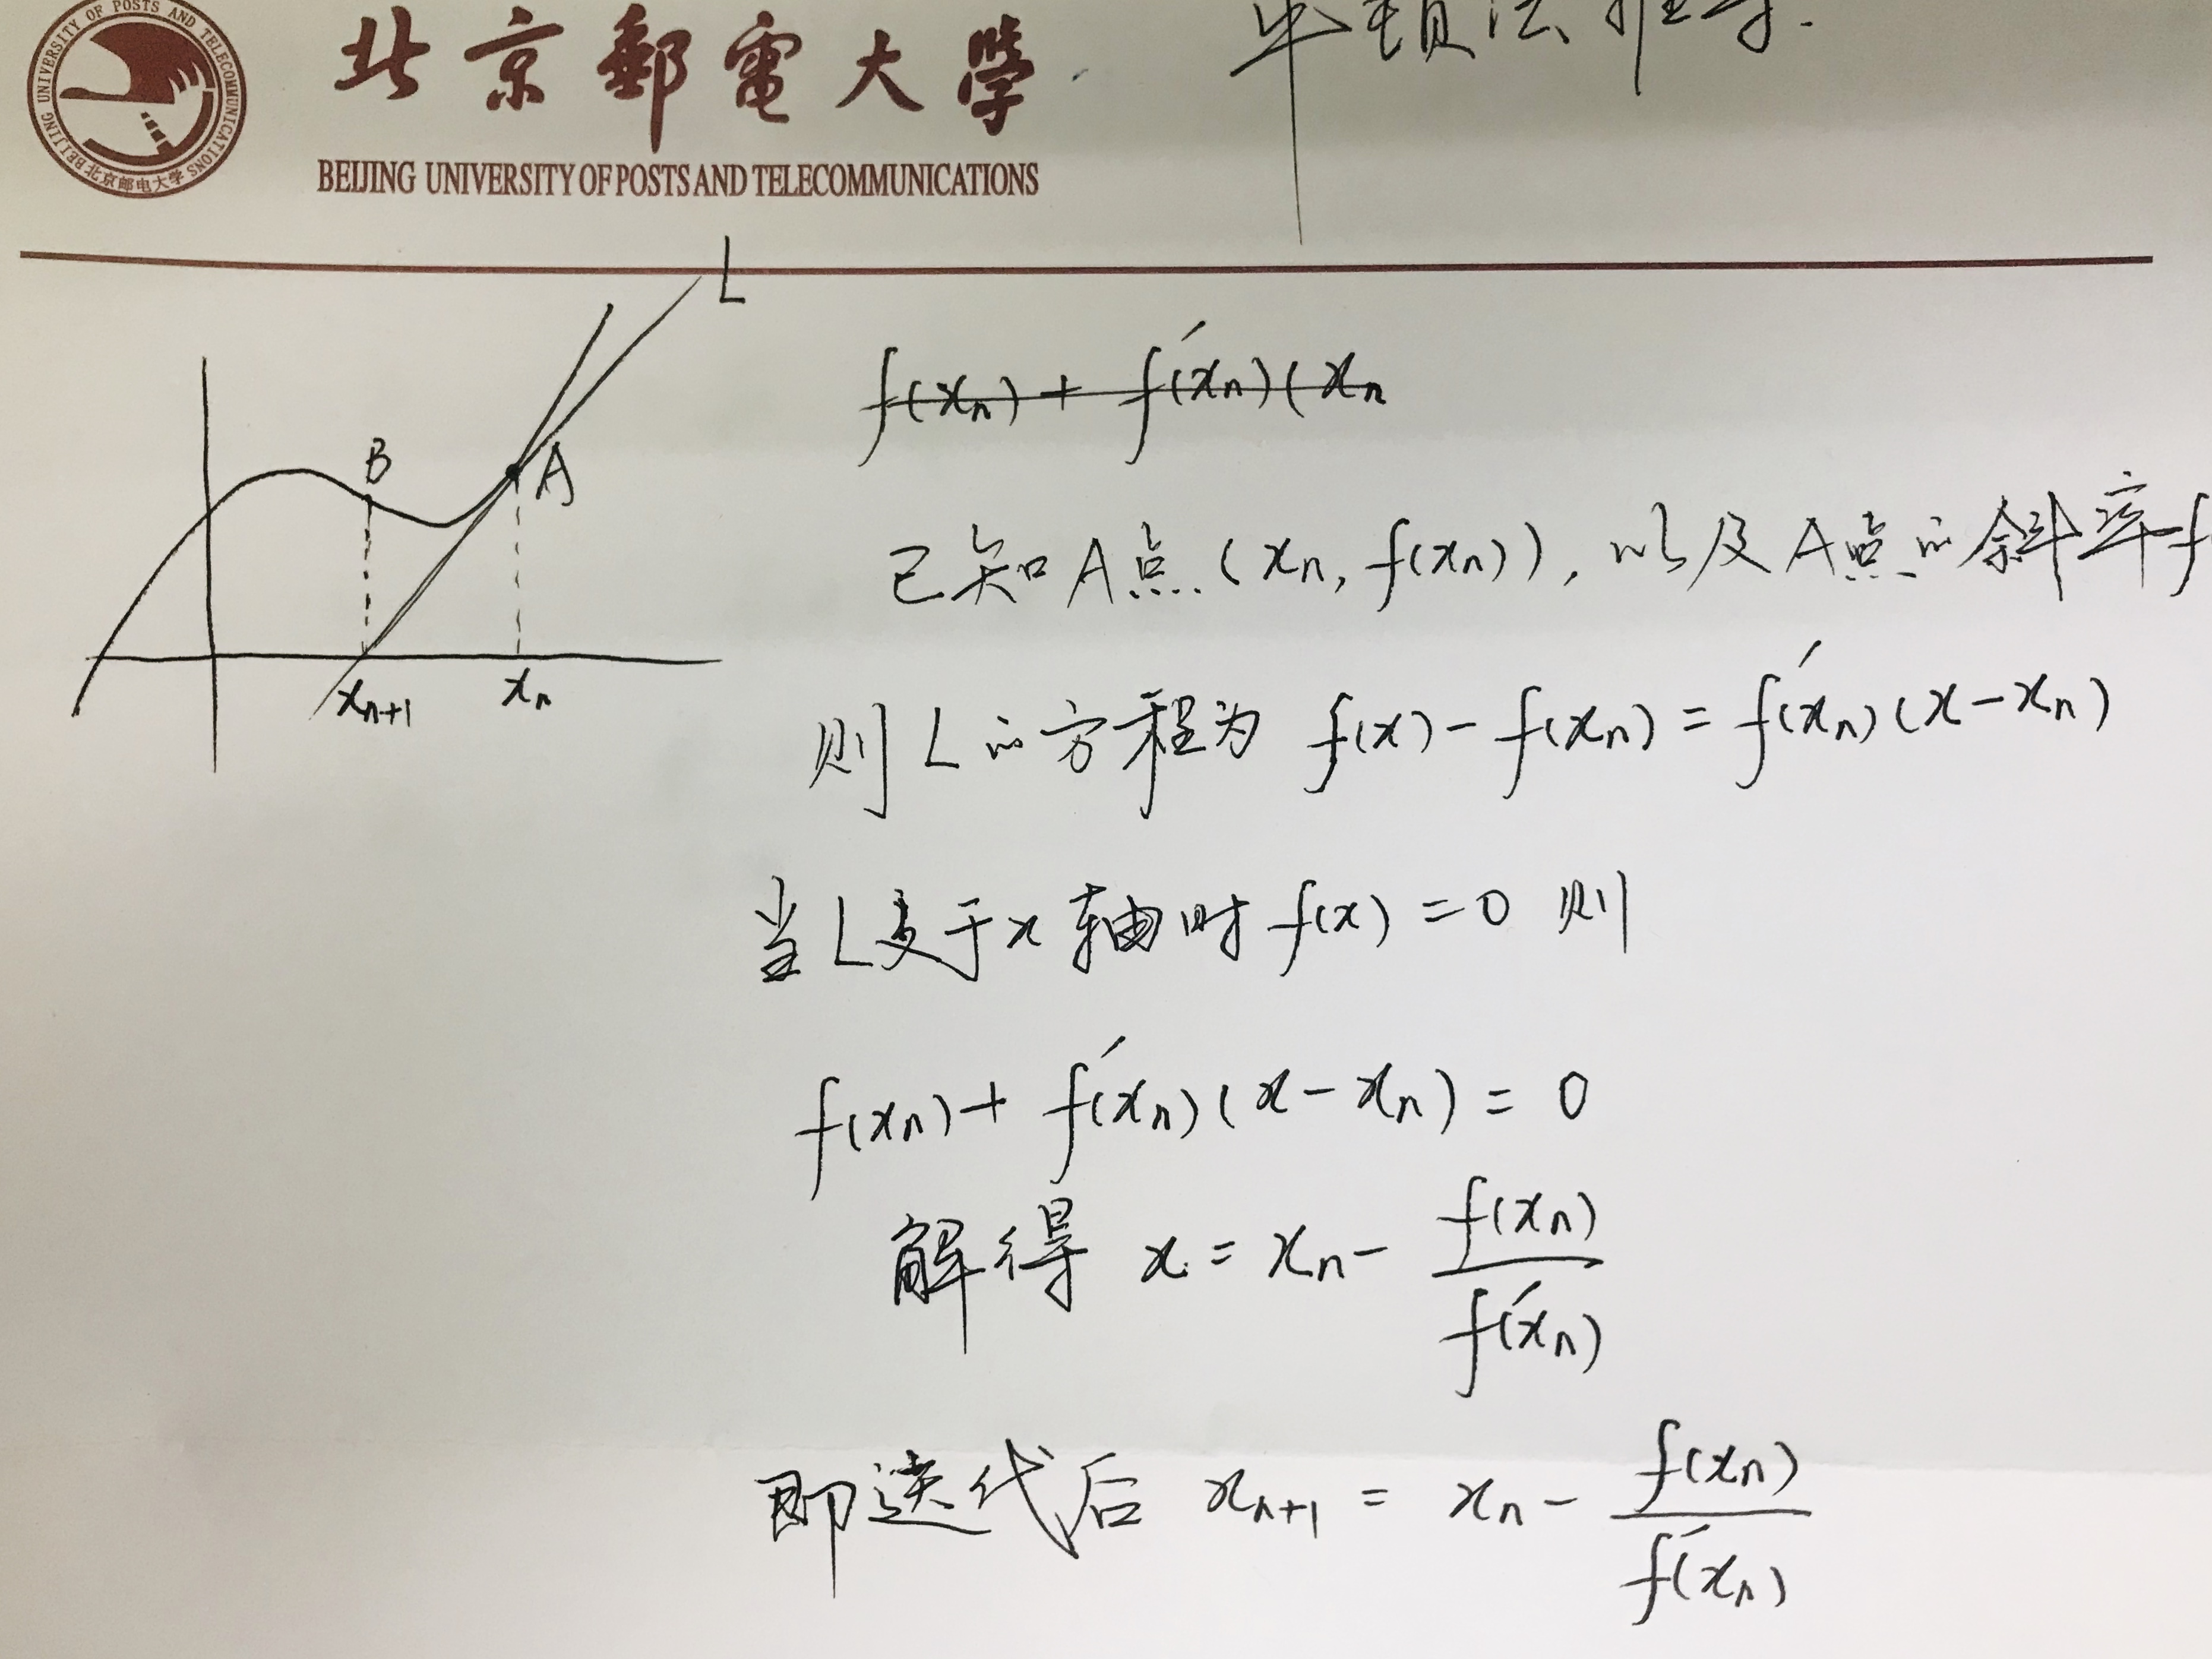 BEIJING UNIVERSITY OF POSTS AND TELECOMMUNICATIONS
北京邮电大学
北京郵電大學
BEIJING UNIVERSITY OF POSTS AND TELECOMMUNICATIONS
牛顿法推导.
L
B
A
xₙ₊₁ xₙ
f(xₙ) + f′(xₙ)(xₙ
已知A点(xₙ, f(xₙ)), 以及A点的斜率f
则L的方程为 f(x) - f(xₙ) = f′(xₙ)(x-xₙ)
当L交于x轴时f(x) = 0 则
f(xₙ) + f′(xₙ)(x-xₙ) = 0
解得 x = xₙ - f(xₙ)/f′(xₙ)
即迭代后 xₙ₊₁ = xₙ - f(xₙ)/f′(xₙ)